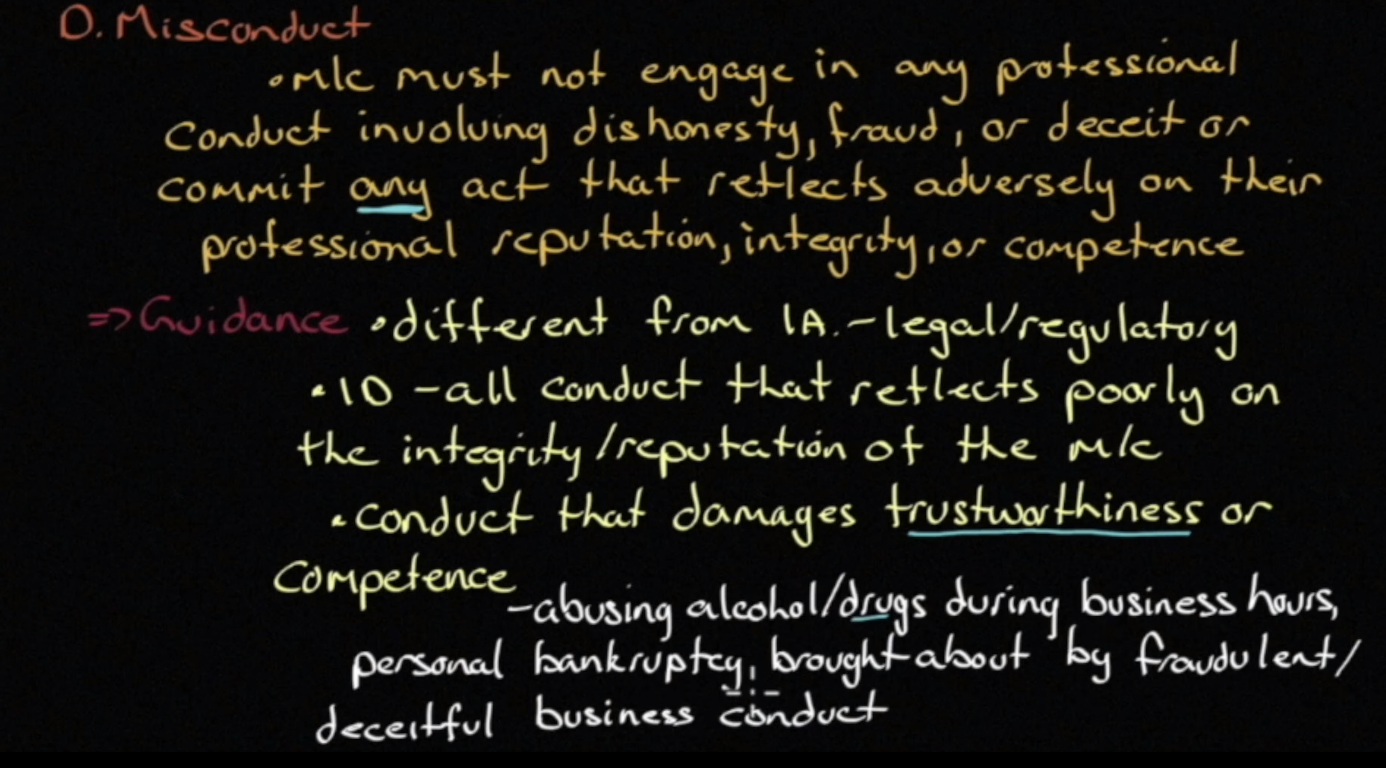 D. Misconduct
• M/c must not engage in any professional
Conduct involving dishonesty, fraud, or deceit or
commit any act that reflects adversely on their
professional reputation, integrity, or competence
=> Guidance • different from IA. - legal/regulatory
• ID - all conduct that reflects poorly on
the integrity/reputation of the M/c
• conduct that damages trustworthiness or
Competence
- abusing alcohol/drugs during business hours,
personal bankruptcy, brought about by fraudulent/
deceitful business conduct